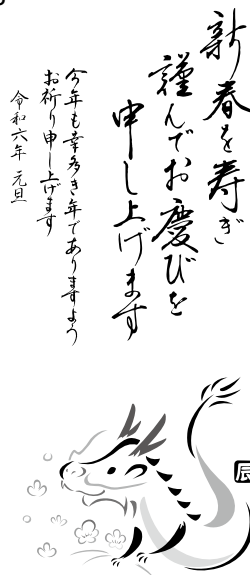 新春を寿ぎ
謹んでお慶びを
申し上げます
今年も幸多き年でありますよう
お祈り申し上げます
令和六年 元旦
辰